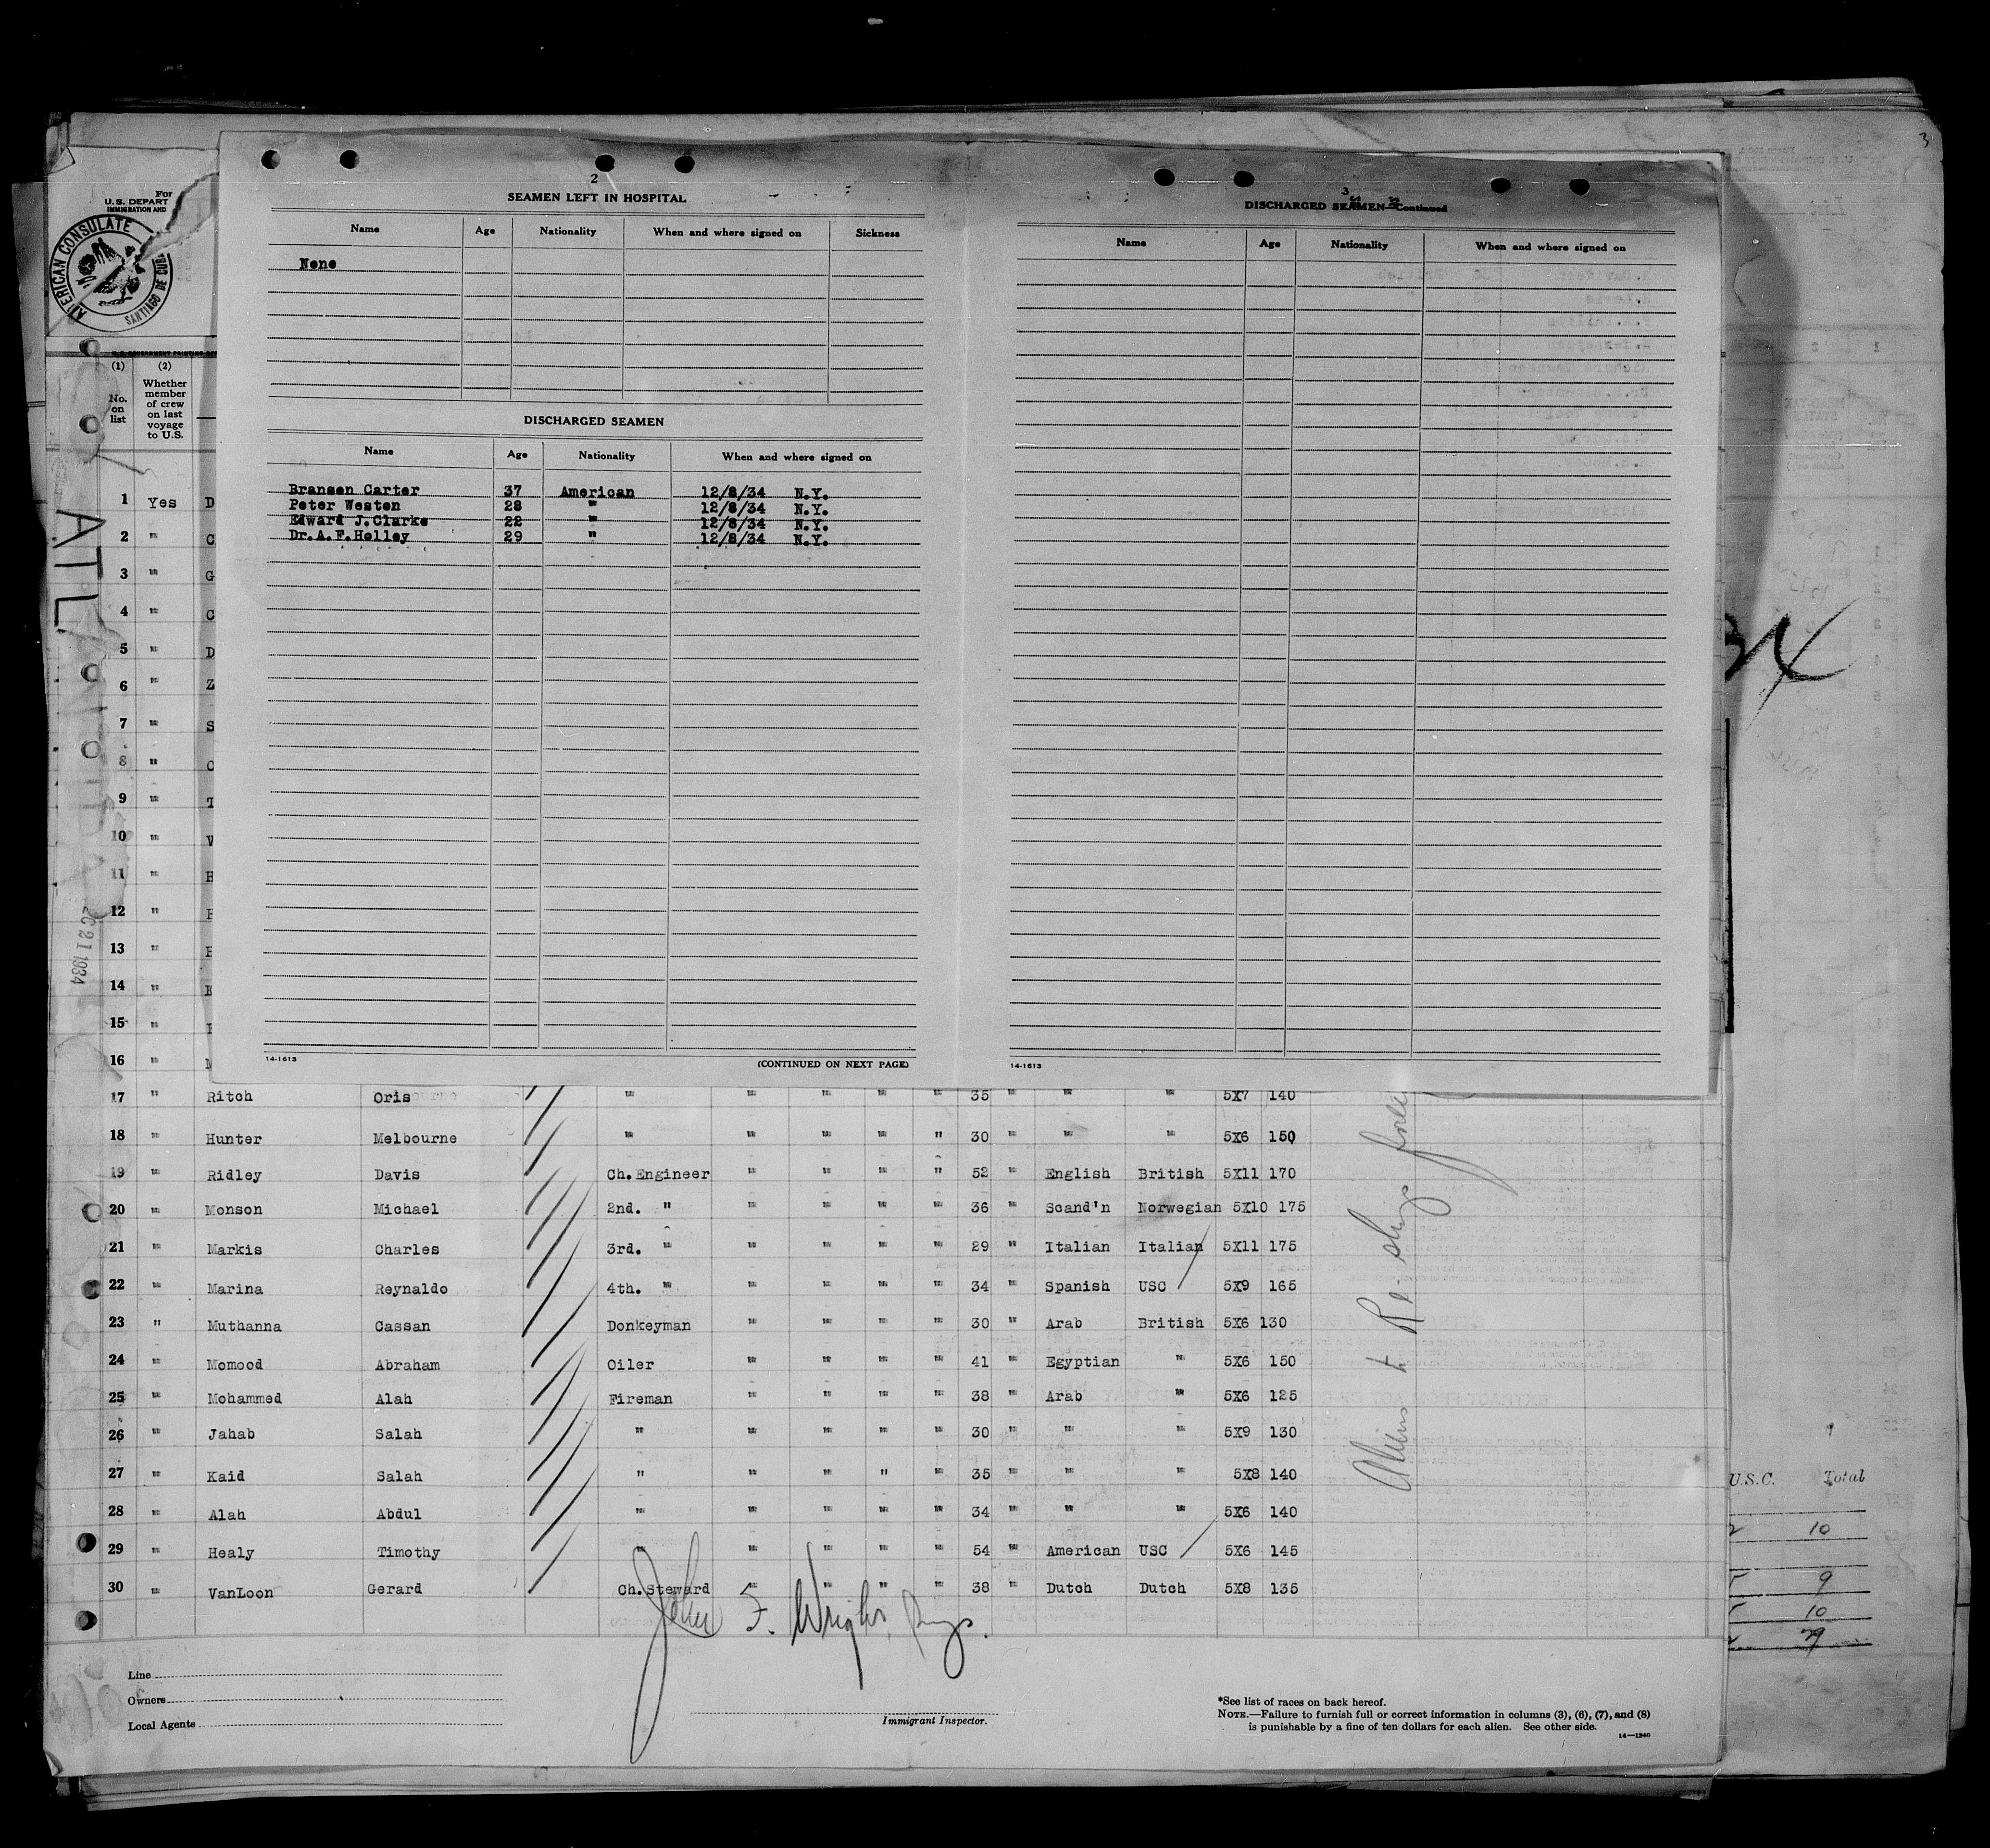 3
For
U.S. DEPART
IMMIGRATION AND
AMERICAN CONSULATE
SANTIAGO DE CUBA
2
SEAMEN LEFT IN HOSPITAL
Name Age Nationality When and where signed on Sickness
None
DISCHARGED SEAMEN
Name Age Nationality When and where signed on
Bransen Carter 37 American 12/8/34 N.Y.
Peter Weston 28 " 12/8/34 N.Y.
Edward J.Clarke 22 " 12/8/34 N.Y.
Dr.A.F.Holley 29 " 12/8/34 N.Y.
14-1613
(CONTINUED ON NEXT PAGE)
3
DISCHARGED SEAMEN—Continued
Name Age Nationality When and where signed on
14-1613
(1) (2)
No. on list
Whether member of crew on last voyage to U.S.
ATL
1 Yes D
2 " C
3 " G
4 " C
5 " D
6 " Z
7 " S
8 " C
9 " T
10 " V
11 " H
12 "
13 "
14 "
15 "
16 "
17 " Ritch Oris " " " " " 35 " " " 5X7 140
18 " Hunter Melbourne " " " " " 30 " " " 5X6 150
19 " Ridley Davis Ch.Engineer " " " " 52 " English British 5X11 170
20 " Monson Michael 2nd. " " " " " 36 " Scand'n Norwegian 5X10 175
21 " Markis Charles 3rd. " " " " " 29 " Italian Italian 5X11 175
22 " Marina Reynaldo 4th. " " " " " 34 " Spanish USC 5X9 165
23 " Muthanna Cassan Donkeyman " " " " 30 " Arab British 5X6 130
24 " Momood Abraham Oiler " " " " 41 " Egyptian " 5X6 150
25 " Mohammed Alah Fireman " " " " 38 " Arab " 5X6 125
26 " Jahab Salah " " " " " 30 " " " 5X9 130
27 " Kaid Salah " " " " " 35 " " " 5X8 140
28 " Alah Abdul " " " " " 34 " " " 5X6 140
29 " Healy Timothy " " " " " 54 " American USC 5X6 145
30 " VanLoon Gerard Ch.Steward " " " " 38 " Dutch Dutch 5X8 135
21 1934
Aliens to Re-ship foreign
John F. Wright
Line
Owners
Local Agents
Immigrant Inspector.
*See list of races on back hereof.
NOTE.—Failure to furnish full or correct information in columns (3), (6), (7), and (8)
is punishable by a fine of ten dollars for each alien. See other side.
14—1240
U.S.C. Total
10
9
10
29